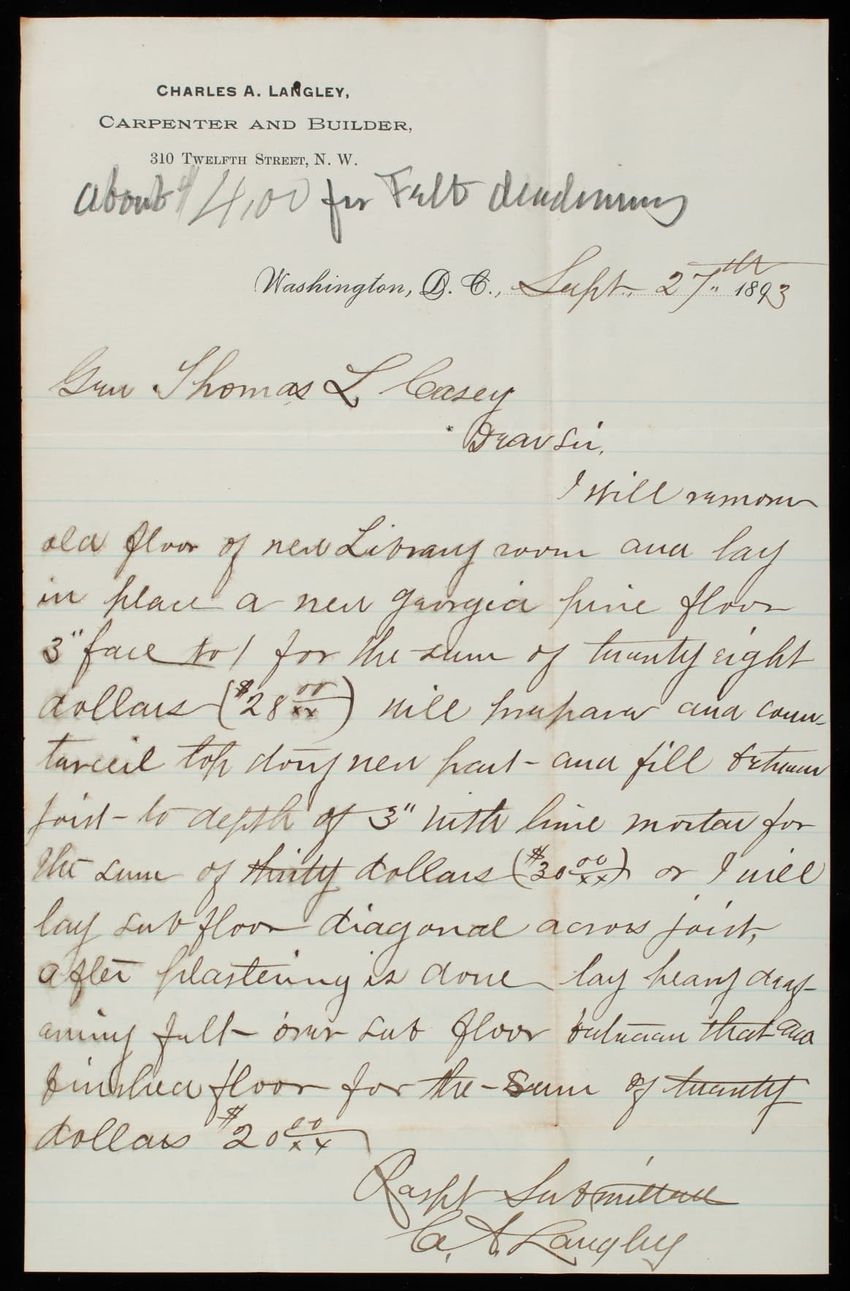 CHARLES A. LANGLEY,
CARPENTER AND BUILDER,
310 TWELFTH STREET, N. W.
about $4.00 for Felt deadening
Washington, D. C., Sept. 27th 1893
Gen Thomas L Casey
Dear Sir,
I will remove
old floor of new Library room and lay
in place a new georgia pine floor
3" face to 1 for the sum of twenty eight
dollars ($28 00/xx) will prepare and coun-
terceil top new part - and fill between
joist - to depth of 3" with lime mortar for
the sum of thirty dollars ($30 00/xx) or I will
lay sub floor diagonal across joist,
after plastering is done lay heavy deaf-
ening felt - over sub floor between that and
finished floor for the sum of twenty
dollars $20 00/xx
Respt Submitted
C. A. Langley